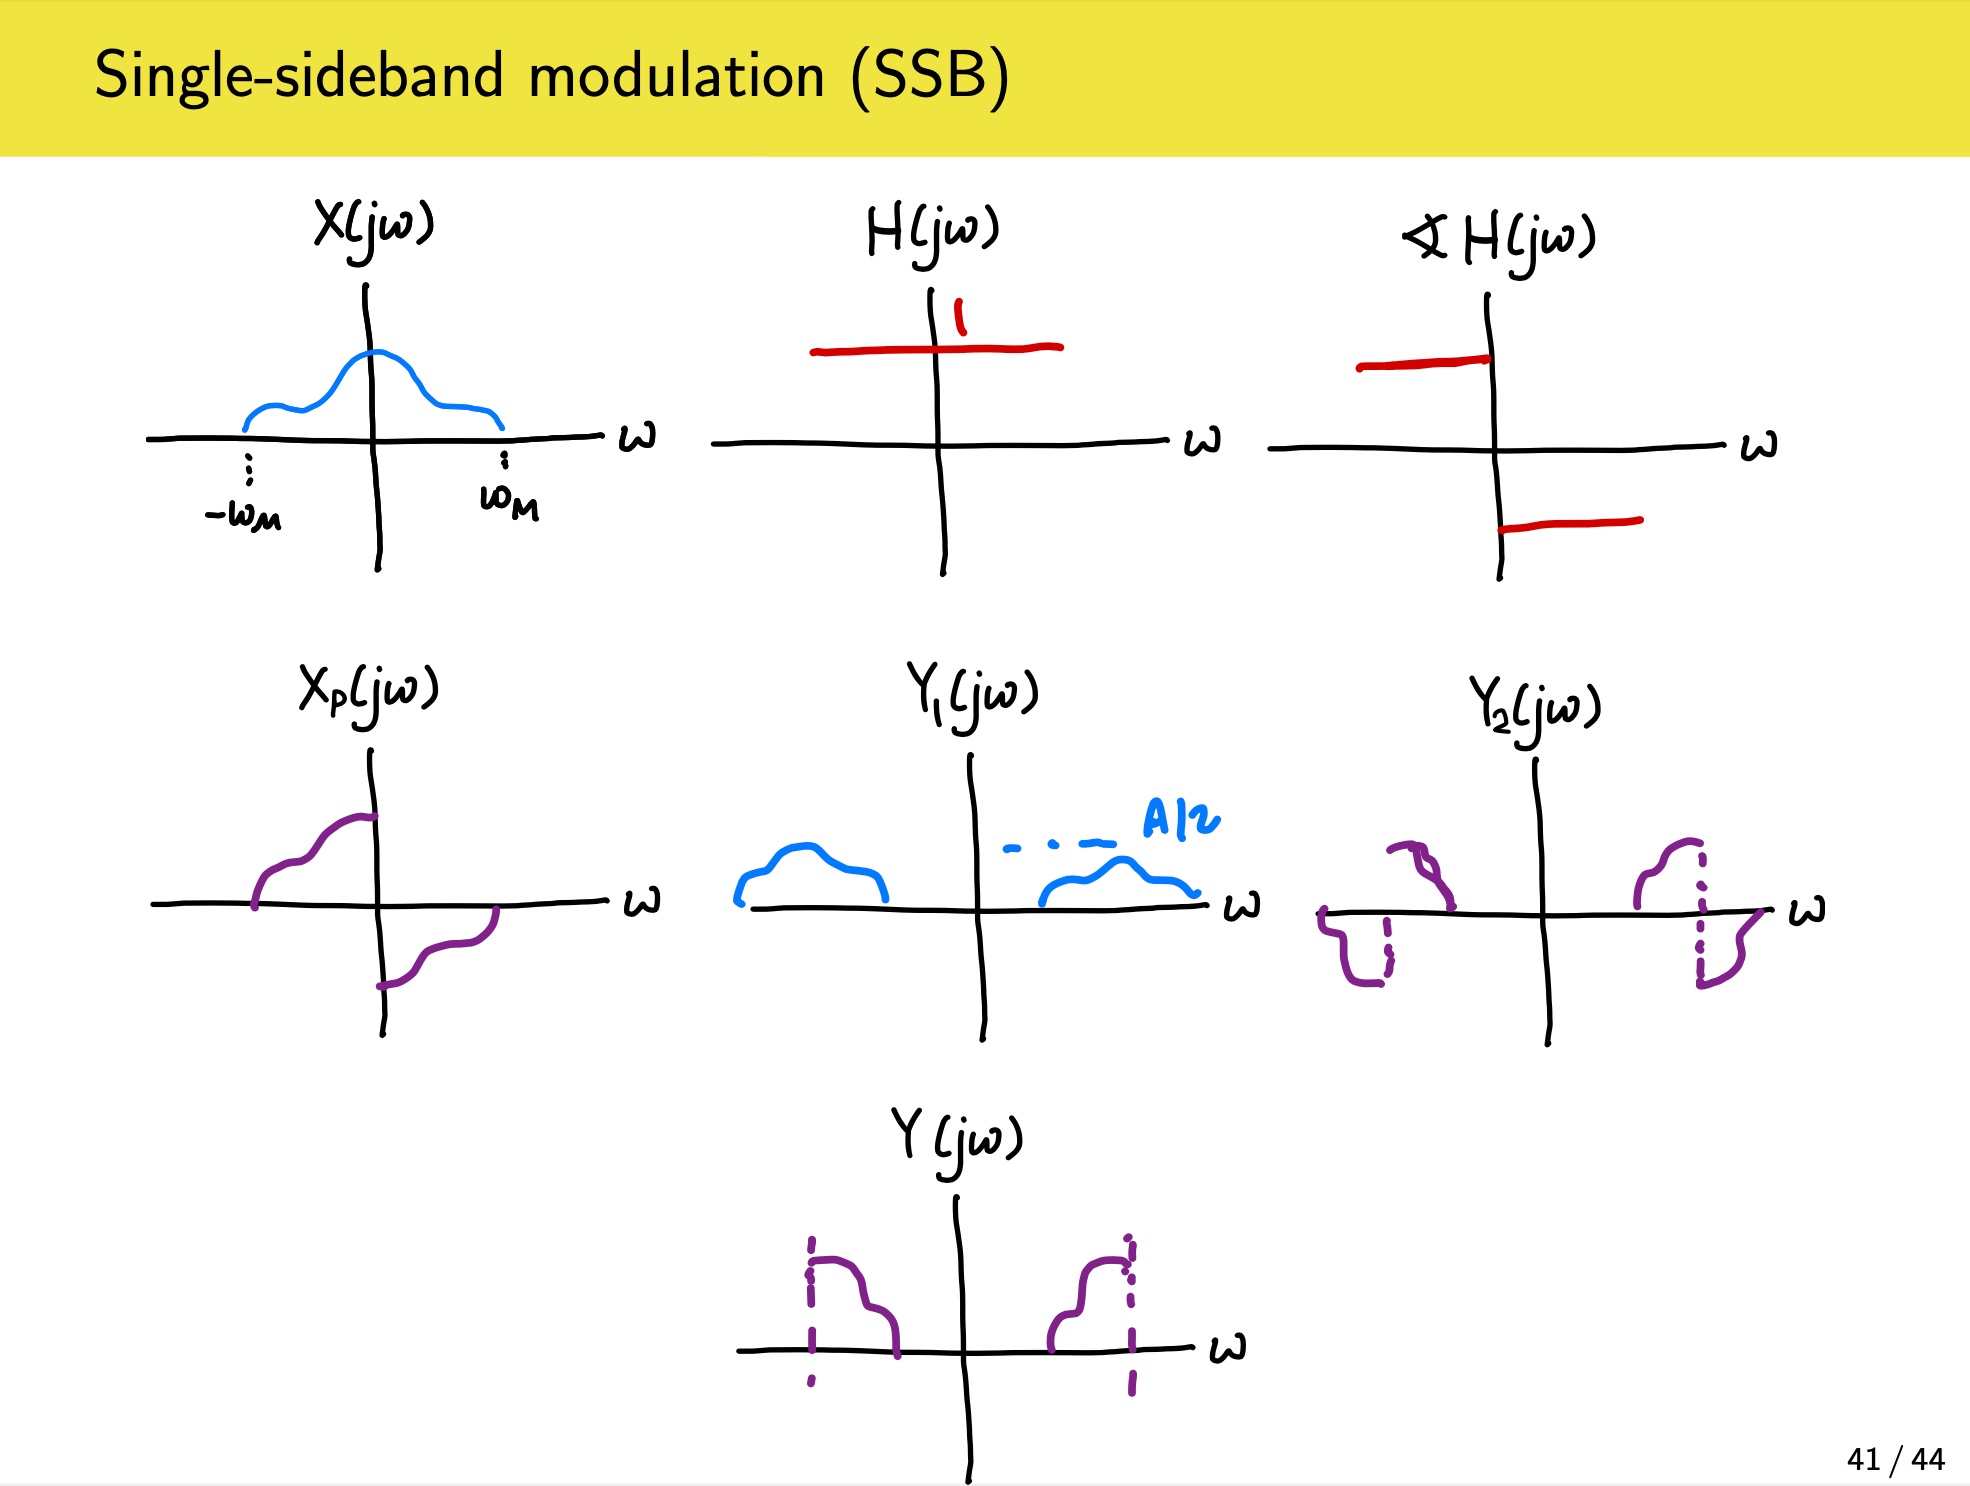 Single-sideband modulation (SSB)
X(jω)
H(jω)
∢ H(jω)
1
ω
ω
ω
-ωM
ωM
Xp(jω)
Y1(jω)
Y2(jω)
A/2
ω
ω
ω
Y(jω)
ω
41 / 44